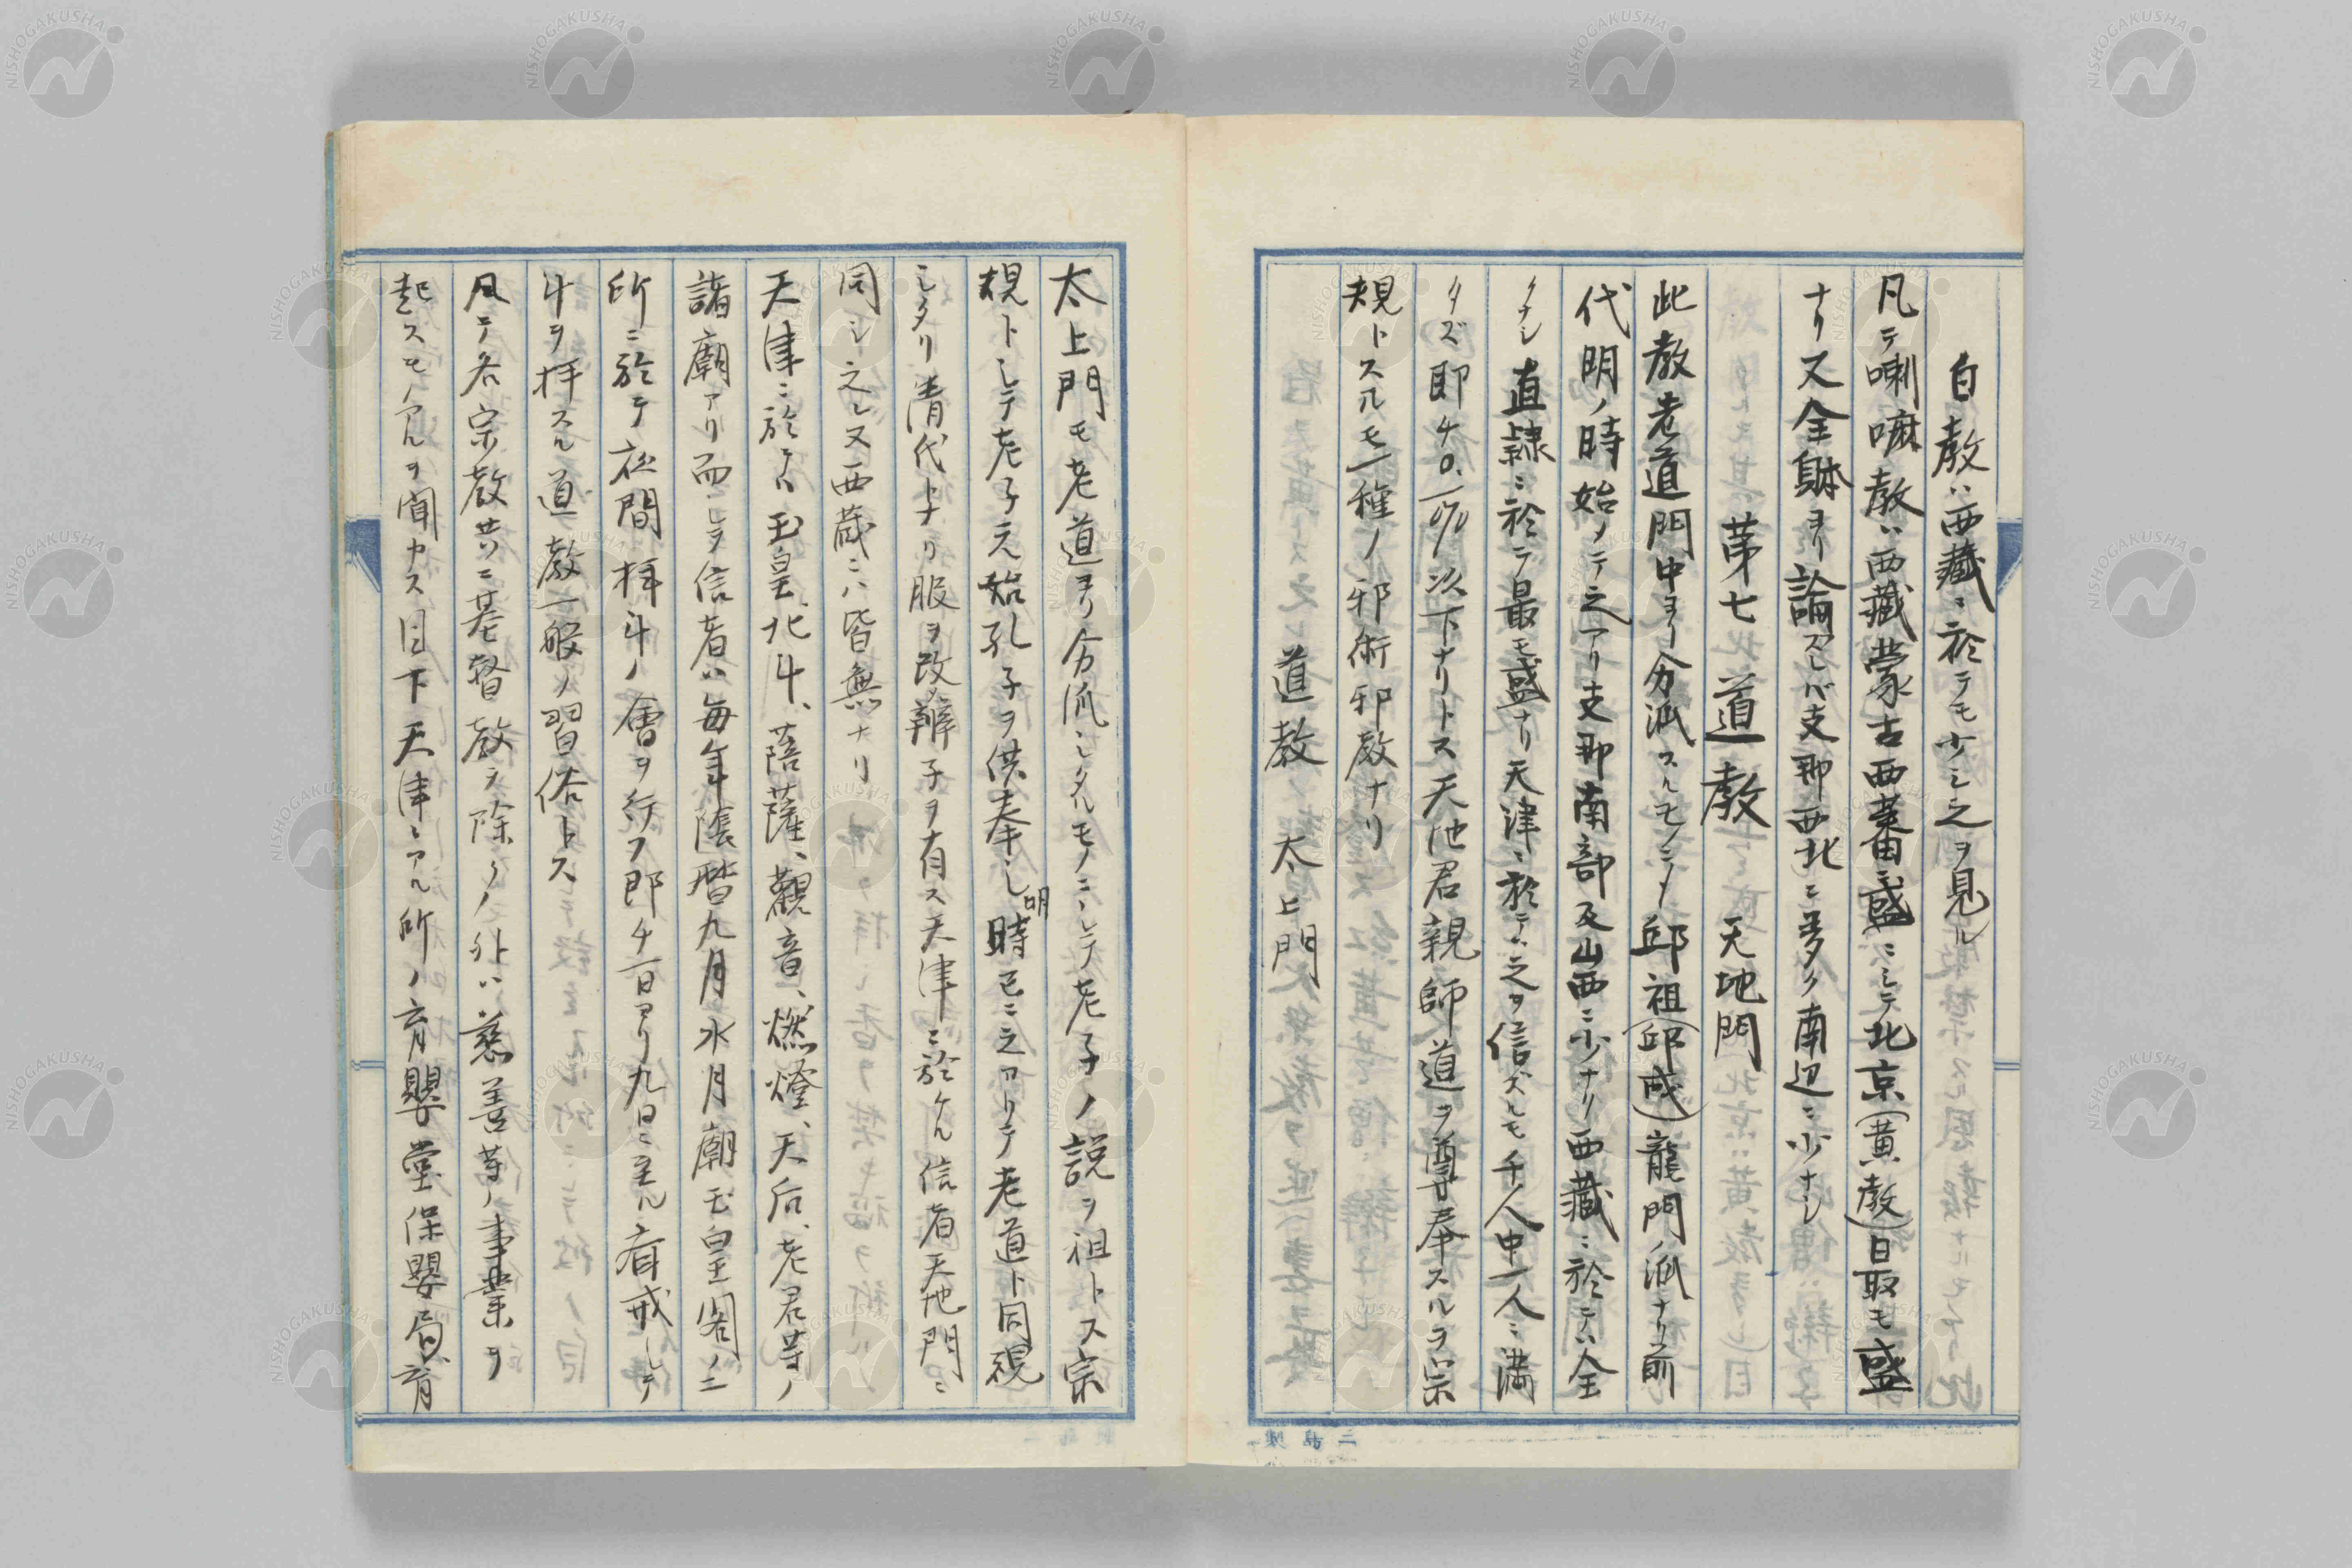 白教ハ西藏ニ於テモ少シ之ヲ見ル
凡テ喇嘛教ハ西藏蒙古西蕃ニ盛ニシテ北京(黄教)日取モ盛
ナリ又全躰ヨリ論スレバ支那西北ニ多ク南辺ニ少ナシ
第七 道教 天地門
此教老道門中ヨリ分派スルモノニメ邱祖(邱成)龍門ノ派ナリ前
代明ノ時始メテ之アリ支那南部及山西ニ少ナリ西藏ニ於テハ全
クナシ直隷ニ於テ最モ盛ナリ天津ニ於テハ之ヲ信ズルモ千人中一人ニ満
タズ即チ0.1%以下ナリトス天地君親師道ヲ尊奉スルヲ宗
規トスルモ一種ノ邪術邪教ナリ
道教 太上門
太上門モ老道ヨリ分派シタルモノニシテ老子ノ説ヲ祖トス宗
規トシテ老子元始孔子ヲ供奉シ明時已ニ之アリテ老道ト同視
シタリ清代トナリ服ヲ改メ辮子ヲ有ス天津ニ於ケル信者天地門ニ
同シ之レ又西蔵ニハ皆無ナリ
天津ニ於テハ玉皇、北斗、菩薩、觀音、燃燈、天后、老君等ノ
諸廟アリ而シテ信者ハ毎年陰暦九月水月廟玉皇閣ノ二
所ニ於テ夜間拝斗ノ會ヲ行フ即チ一日ヨリ九日ニ至ル斎戒シテ
斗ヲ拝スル道教一般ノ習俗トス
凡テ各宗教共ニ基督教ヲ除クノ外ハ慈善等ノ事業ヲ
起スモノアルヲ聞カス目下天津ニアル所ノ育嬰堂保嬰局、育